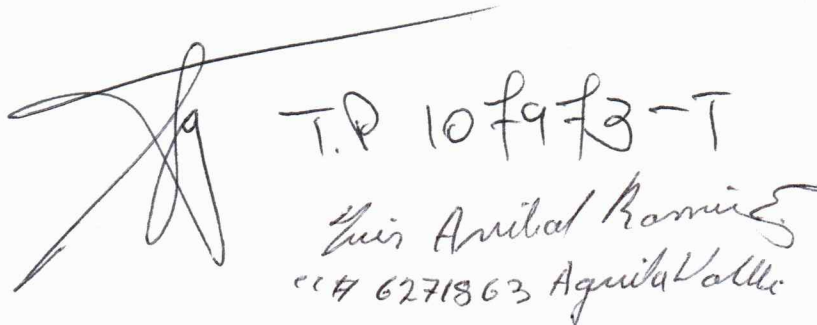 T.P 107973-T
Luis Anibal Ramirez
cc# 6271863 Aguila Valle